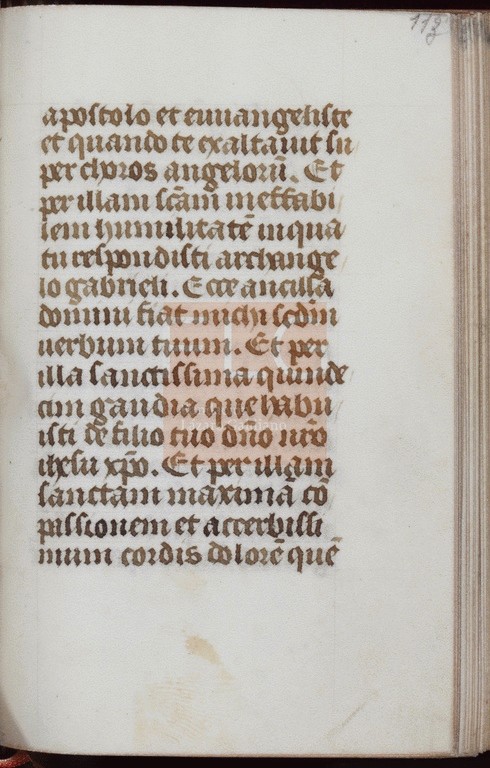 113
apostolo et euuangeliste
et quando te exaltauit su
per choros angelorū. Et
per illam scām ineffabi
lem humilitatē in qua
tu respondisti archange
lo gabrieli. Ecce ancilla
domini fiat michi scdm̄
uerbum tuum. Et per
illa sanctissima quinde
cim gaudia que habu
isti de filio tuo dn̄o nr̄o
ihesu xp̄o. Et per illam
sanctam maximā cō
passionem et accerbissi
mum cordis dolorē quē